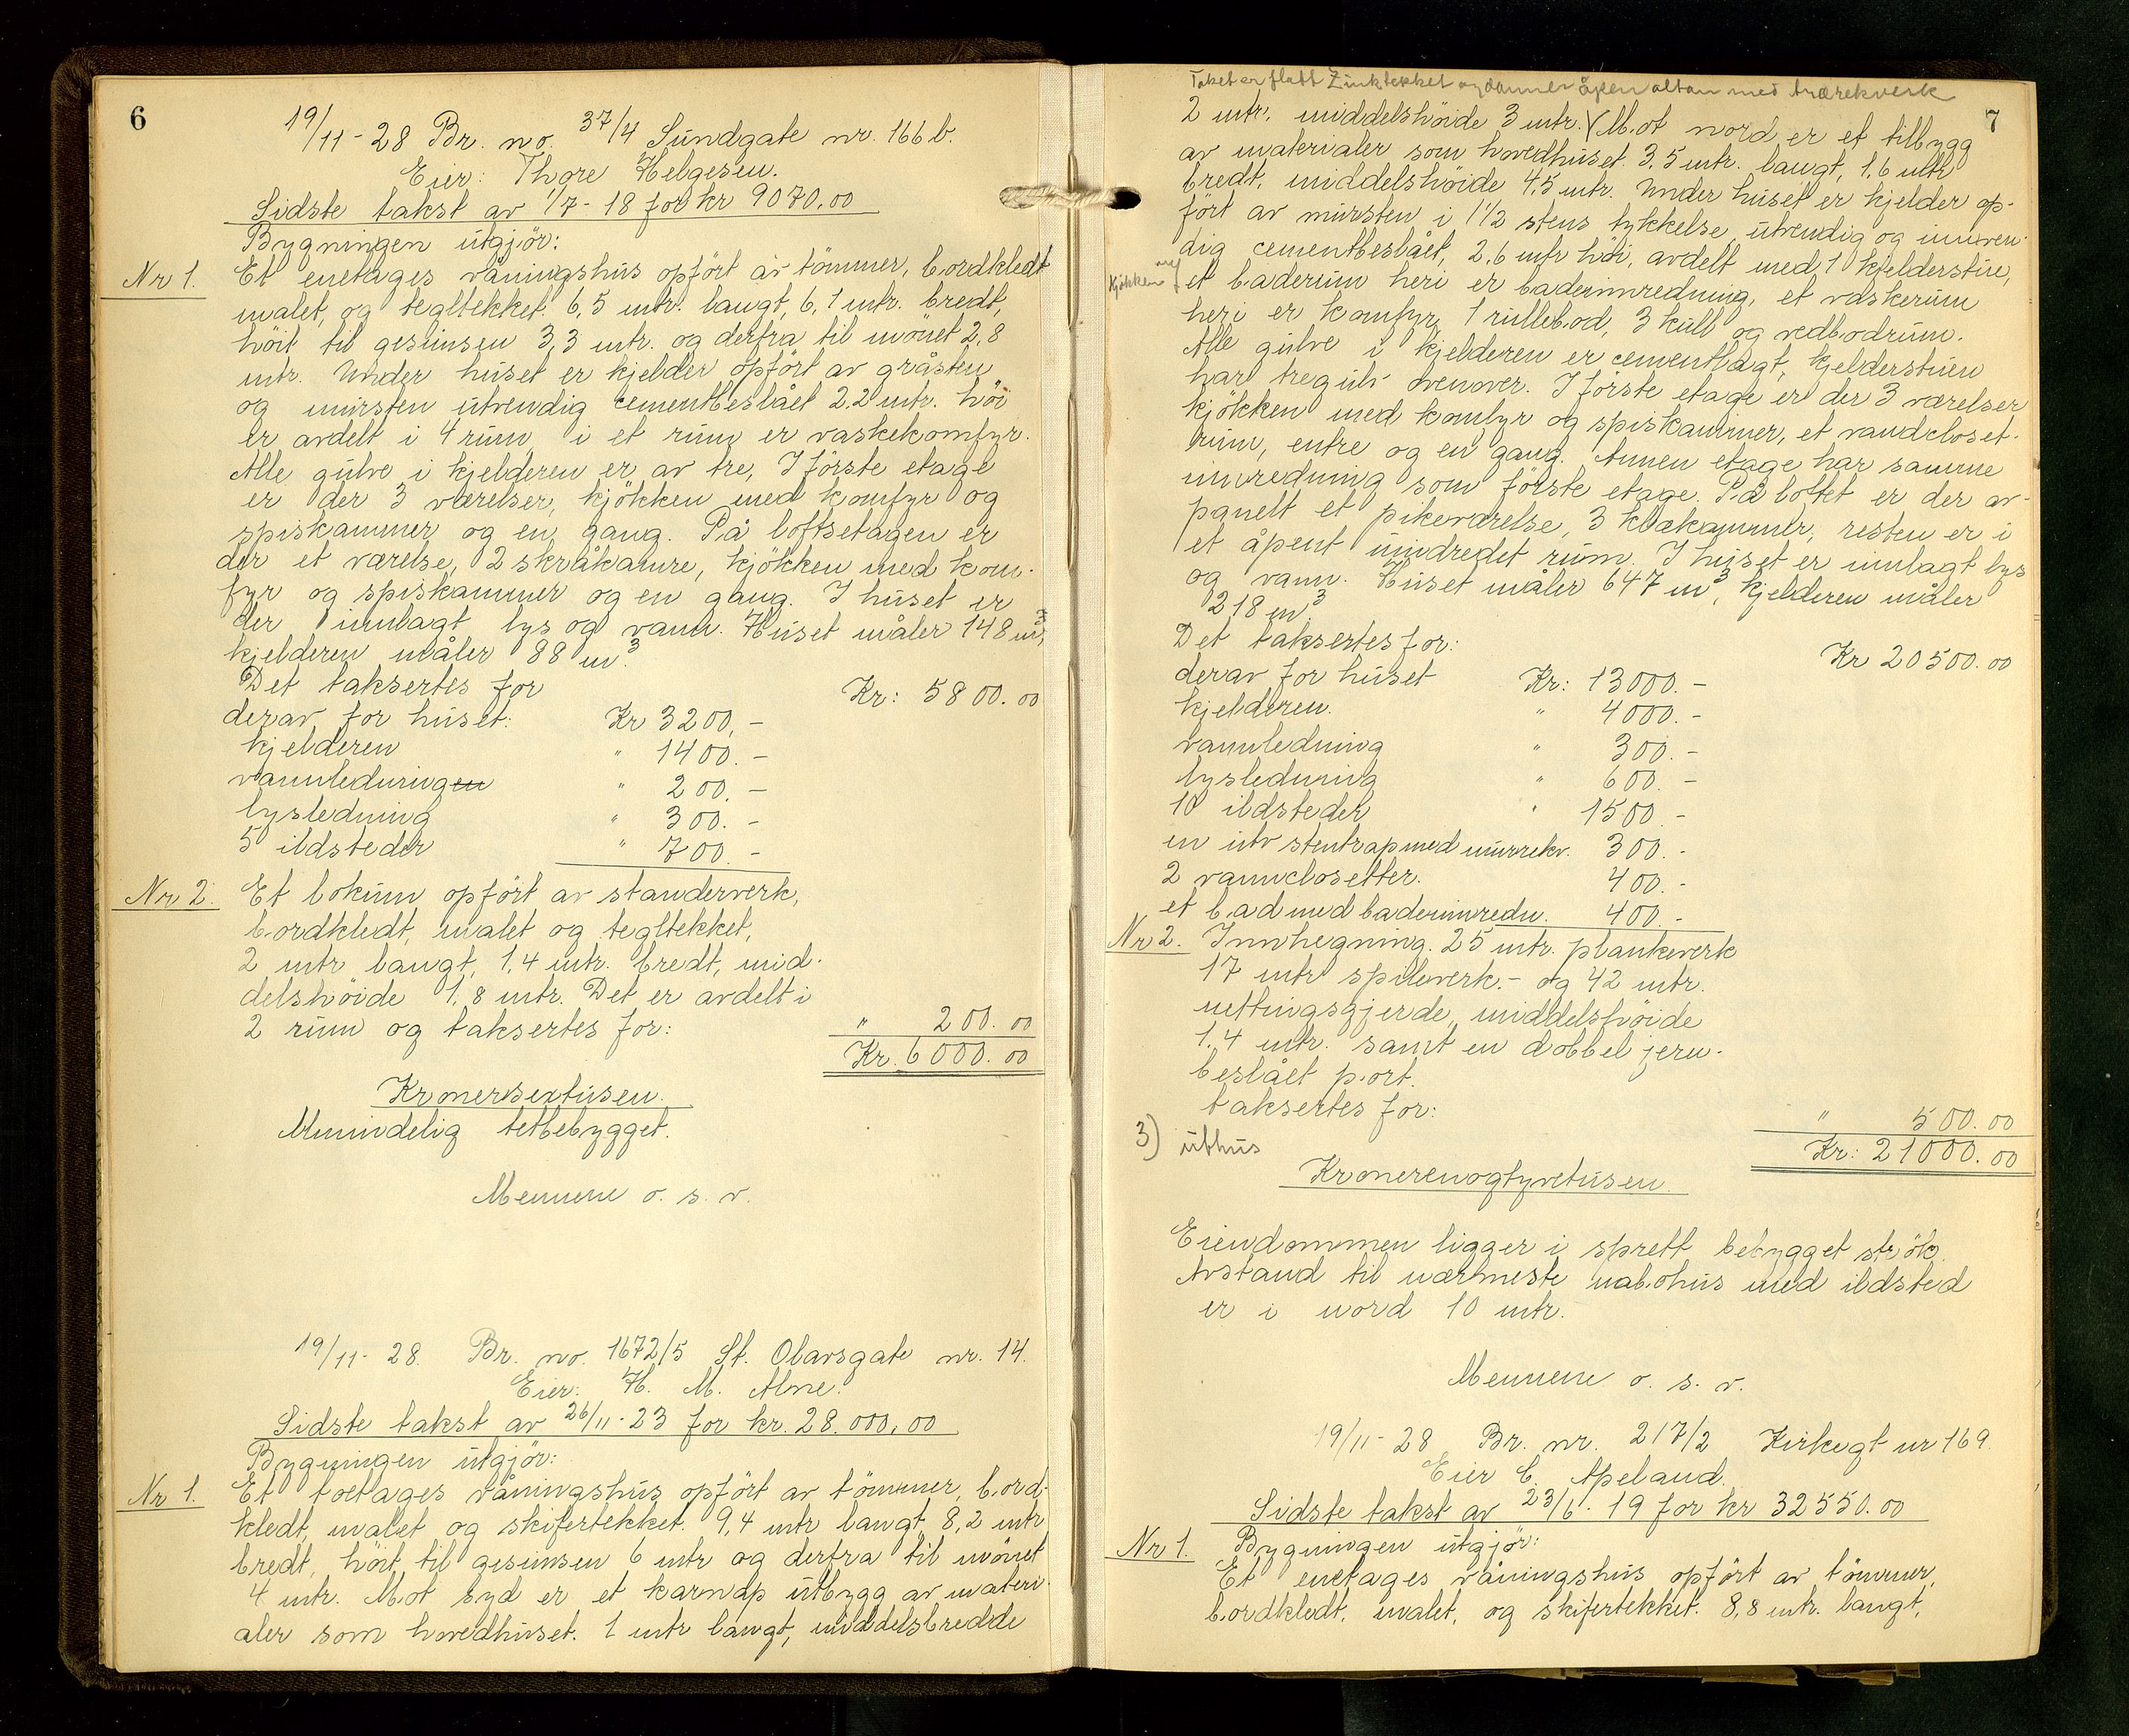 6
19/11-28 Br. no. 37/4 Sundgate nr. 166 b.
Eier: Thore Helgesen.
Sidste takst av 1/7-18 for kr 9070.00
Bygningen utgjör:
Nr 1. Et enetages våningshus opfört av tömmer, bordkledt
malet, og tegltekket. 6,5 mtr. langt, 6,1 mtr. bredt,
höit til gesimsen 3,3 mtr. og derfra til mönet 2,8
mtr. Under huset er kjelder opfört av gråsten
og mursten utvendig cementbeslået 2.2 mtr. höi
er avdelt i 4 rum, i et rum er vaskekomfyr.
Alle gulve i kjelderen er av tre, I förste etage
er der 3 værelser, kjökken med komfyr og
spiskammer og en gang. På loftsetagen er
der et værelse, 2 skråkamre, kjökken med kom-
fyr og spiskammer og en gang. I huset er
der innlagt lys og vann. Huset måler 148 m3,
kjelderen måler 88 m3.
Det taksertes for Kr: 5800.00
derav for huset: Kr 3200,-
kjelderen " 1400.-
vannledningen " 200.-
lysledning " 300.-
5 ildsteder " 700.-
Nr 2. Et lokum opfört av standerverk,
bordkledt, malet og tegltekket,
2 mtr langt, 1,4 mtr. bredt, mid-
delshöide 1,8 mtr. Det er avdelt i
2 rum og taksertes for: " 200.00
Kr. 6000.00
Kronersextusen.
Almindelig tetbebygget.
Mennene o. s. v.
19/11-28. Br. no. 1672/5 St. Olavsgate nr. 14.
Eier: H. M. Alne.
Sidste takst av 26/11-23 for kr. 28.000,00
Bygningen utgjör:
Nr 1. Et toetages våningshus opfört av tömmer, bord-
kledt, malet og skifertekket. 9,4 mtr langt, 8,2 mtr
bredt, höit til gesimsen 6 mtr og derfra til mönet
4 mtr. Mot syd er et karnap utbygg av materi-
aler som hovedhuset. 1 mtr langt, middelsbredde
7
Taket er flatt Zinktekket og danner åpen altan med trærekverk
2 mtr, middelshöide 3 mtr. V Mot nord er et tilbygg
av materialer som hovedhuset. 3,5 mtr. langt, 1,6 mtr
bredt, middelshöide 4,5 mtr. Under huset er kjelder op-
fört av mursten i 1 1/2 stens tykkelse, utvendig og innven-
dig cementbeslået, 2,6 mtr höi, avdelt med 1 kjelderstue,
kjökken et baderum heri er badeinnredning, et vaskerum
heri er komfyr, 1 rullebod, 3 kull og vedbodrum.
Alle gulve i kjelderen er cementlagt, kjelderstuen
har tregulv ovenover. I förste etage er der 3 værelser
kjökken med komfyr og spiskammer, et vandcloset-
rum, entre og en gang. Annen etage har samme
innredning som förste etage. På loftet er der av-
panelt et pikeværelse, 3 kvækammer, resten er i
et åpent uindredet rum. I huset er innlagt lys
og vann. Huset måler 647 m3, kjelderen måler
218 m3
Det taksertes for: Kr 20500.00
derav for huset Kr: 13000.-
kjelderen. " 4000.-
vannledning " 300.-
lysledning " 600.-
10 ildsteder " 1500.-
en utv stentrap med murrekv. 300.-
2 vannclosetter. 400.-
et bad med badeinnredn. 400.-
Nr 2. Innhegning. 25 mtr. plankeverk
17 mtr spileverk.- og 42 mtr.
nettingsgjerde, middelshöide
1,4 mtr. samt en dobbel jern-
beslået port.
taksertes for: " 500.00
Kr: 21000.00
3) uthus
Kronerenogtyvetusen.
Eiendommen ligger i sprett bebygget strök.
Avstand til nærmeste nabohus med ildsted
er i nord 10 mtr.
Mennene o. s. v.
19/11-28 Br. nr. 217/2 Kirkegt nr 169.
Eier C. Apeland.
Sidste takst av 23/6-19 for kr 32550.00
Bygningen utgjör:
Nr 1. Et enetages våningshus opfört av tömmer,
bordkledt, malet, og skifertekket. 8,8 mtr. langt,